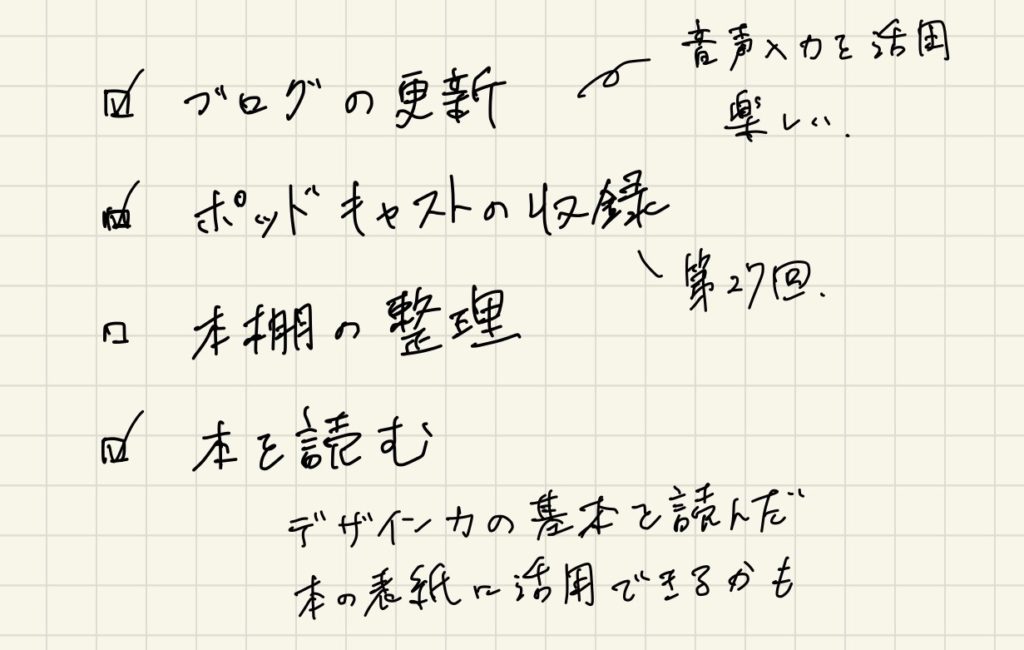 ☑ ブログの更新
音声入力を活用
楽しい.
☑ ポッドキャストの収録
第27回.
□ 本棚の整理
☑ 本を読む
デザイン力の基本を読んだ
本の表紙に活用できるかも